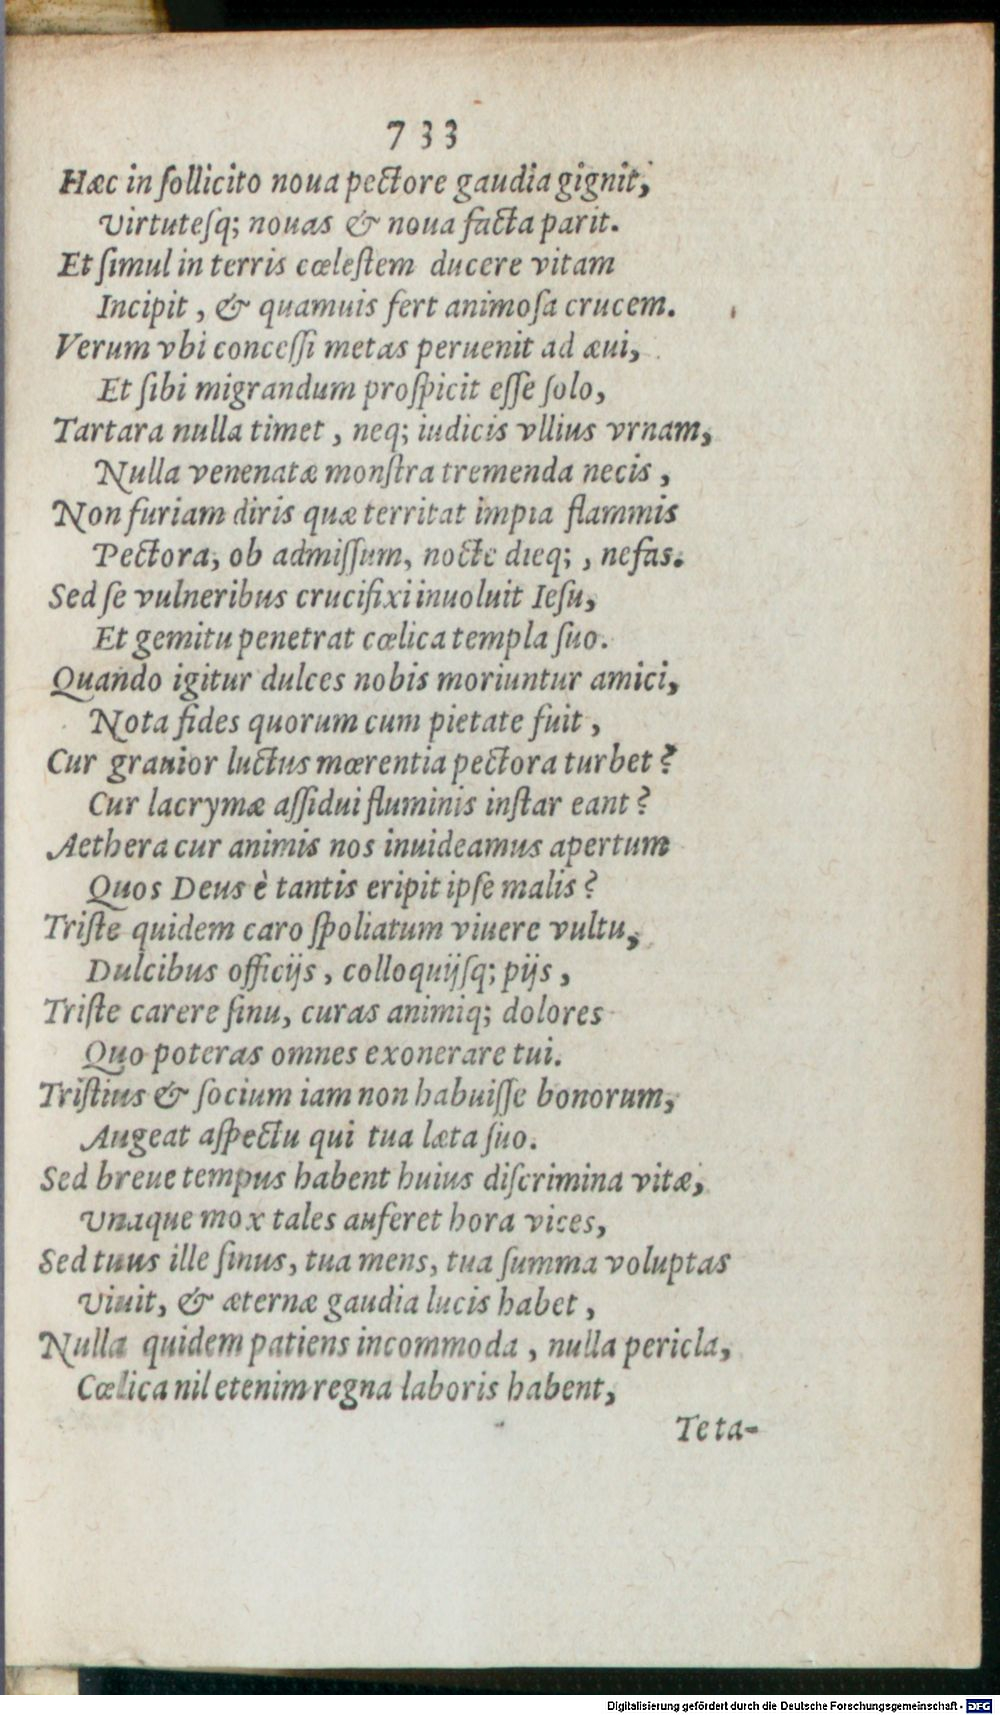 733
Hæc in ſollicito noua pectore gaudia gignit,
Virtuteſq; nouas & noua facta parit.
Et ſimul in terris cœleſtem ducere vitam
Incipit, & quamuis fert animoſa crucem.
Verum vbi conceſſi metas peruenit ad æui,
Et ſibi migrandum proſpicit eſſe ſolo,
Tartara nulla timet, neq; iudicis vllius vrnam,
Nulla venenatæ monſtra tremenda necis,
Non furiam diris quæ territat impia flammis
Pectora, ob admiſſum, nocte dieq;, nefas.
Sed ſe vulneribus crucifixi inuoluit Ieſu,
Et gemitu penetrat cœlica templa ſuo.
Quando igitur dulces nobis moriuntur amici,
Nota fides quorum cum pietate fuit,
Cur grauior luctus mœrentia pectora turbet?
Cur lacrymæ aſſidui fluminis inſtar eant?
Aethera cur animis nos inuideamus apertum
Quos Deus è tantis eripit ipſe malis?
Triſte quidem caro ſpoliatum viuere vultu,
Dulcibus officijs, colloquijſq; pijs,
Triſte carere ſinu, curas animiq; dolores
Quo poteras omnes exonerare tui.
Triſtius & ſocium iam non habuiſſe bonorum,
Augeat aſpectu qui tua læta ſuo.
Sed breue tempus habent huius diſcrimina vitæ,
Vnaque mox tales auferet hora vices,
Sed tuus ille ſinus, tua mens, tua ſumma voluptas
Viuit, & æternæ gaudia lucis habet,
Nulla quidem patiens incommoda, nulla pericla,
Cœlica nil etenim regna laboris habent,
Teta-
Digitalisierung gefördert durch die Deutsche Forschungsgemeinschaft - DFG